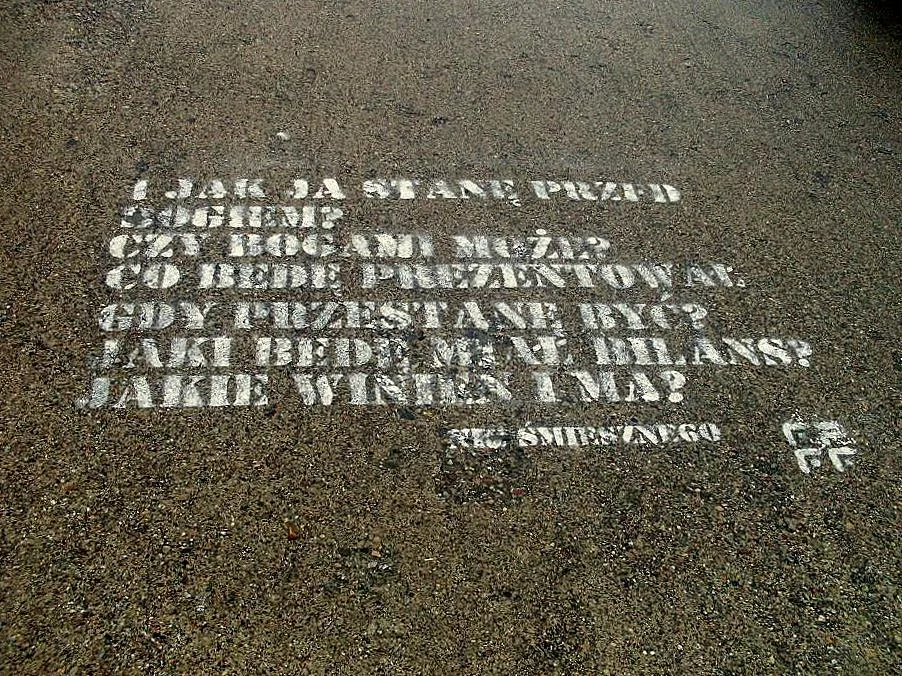 I JAK JA STANĘ PRZED
BOGIEM?
CZY BOGAMI MOŻE?
CO BĘDĘ PREZENTOWAŁ
GDY PRZESTANĘ BYĆ?
JAKI BĘDĘ MIAŁ BILANS?
JAKIE WINIEN I MA?
NIC ŚMIESZNEGO